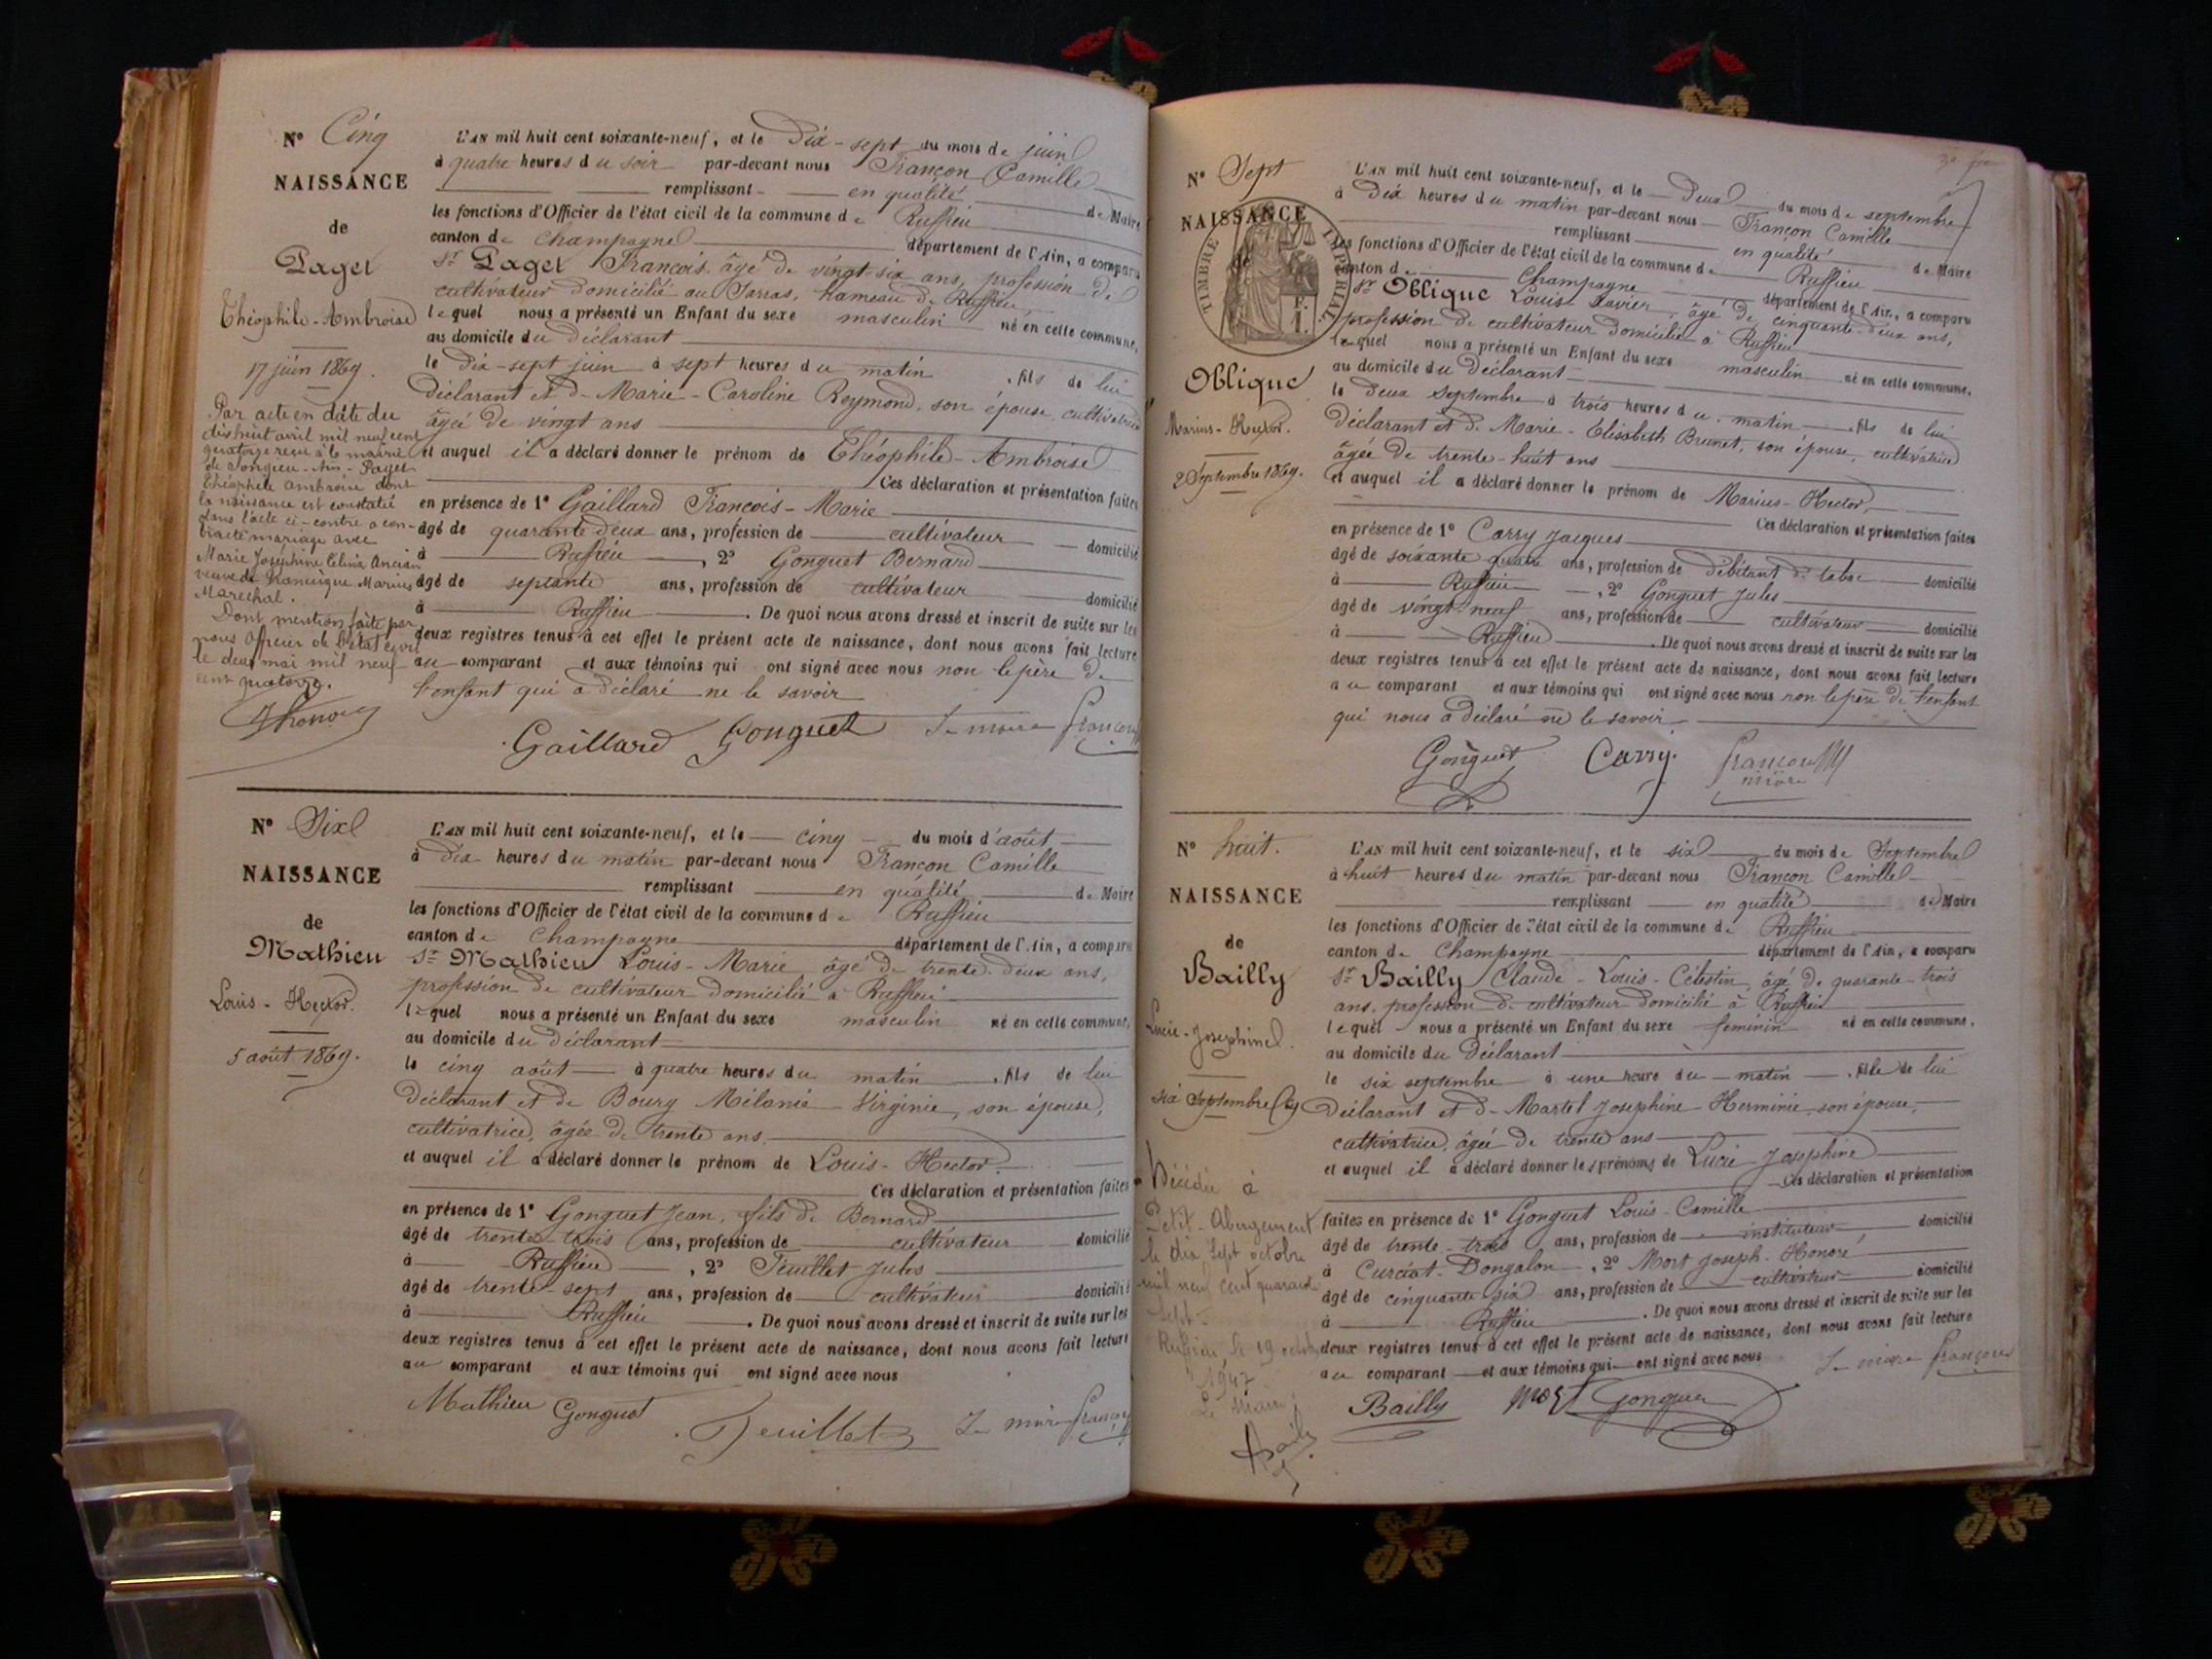 N° Cinq
NAISSANCE
de
Paget
Théophile-Ambroise
17 juin 1869.
Par acte en date du
dix huit avril mil neuf cent
quatorze reçu à la mairie
de Songieu - Ain - Paget
Théophile Ambroise dont
la naissance est constatée
dans l'acte ci-contre a con-
tracté mariage avec
Marie Joséphine Célina Ancian
veuve de Marius
Marechal.
Dont mention faite par
nous Officier de l'état civil
le deux mai mil neuf
cent quatorze.
L'AN mil huit cent soixante-neuf, et le Dix-sept du mois de juin
à quatre heures du soir par-devant nous Françon Camille
remplissant en qualité de Maire
les fonctions d'Officier de l'état civil de la commune de Ruffieu
canton de Champagne département de l'Ain, a comparu
Sr Paget François, âgé de vingt-six ans, profession de
cultivateur domicilié au Sarras, hameau de Ruffieu,
lequel nous a présenté un Enfant du sexe masculin né en cette commune,
au domicile du déclarant
le Dix-sept juin à sept heures du matin, fils de lui
déclarant et de Marie-Caroline Reymond, son épouse cultivatrice
âgée de vingt ans
et auquel il a déclaré donner le prénom de Théophile-Ambroise
Ces déclaration et présentation faites
en présence de 1° Gaillard François-Marie
âgé de quarante deux ans, profession de cultivateur domicilié
à Ruffieu, 2° Gonguet Bernard
âgé de septante ans, profession de cultivateur domicilié
à Ruffieu. De quoi nous avons dressé et inscrit de suite sur les
deux registres tenus à cet effet le présent acte de naissance, dont nous avons fait lecture
au comparant et aux témoins qui ont signé avec nous non le père de
l'enfant qui a déclaré ne le savoir
Gaillard Gonguet Le maire françon
N° Six
NAISSANCE
de
Mathieu
Louis-Hector.
5 août 1869.
L'AN mil huit cent soixante-neuf, et le cinq du mois d'août
à Dix heures du matin par-devant nous Françon Camille
remplissant en qualité de Maire
les fonctions d'Officier de l'état civil de la commune de Ruffieu
canton de Champagne département de l'Ain, a comparu
Sr Mathieu Louis-Marie âgé de trente-deux ans,
profession de cultivateur domicilié à Ruffieu
lequel nous a présenté un Enfant du sexe masculin né en cette commune,
au domicile du déclarant
le cinq août à quatre heures du matin, fils de lui
Déclarant et de Boury Mélanie-Virginie, son épouse,
cultivatrice, âgée de trente ans.
et auquel il a déclaré donner le prénom de Louis-Hector.
Ces déclaration et présentation faites
en présence de 1° Gonguet Jean, fils de Bernard
âgé de trente-trois ans, profession de cultivateur domicilié
à Ruffieu, 2° Feuillet Jules
âgé de trente-sept ans, profession de cultivateur domicilié
à Ruffieu. De quoi nous avons dressé et inscrit de suite sur les
deux registres tenus à cet effet le présent acte de naissance, dont nous avons fait lecture
au comparant et aux témoins qui ont signé avec nous
Mathieu Gonguet Feuillet Le maire françon
N° Sept
NAISSANCE
de
TIMBRE IMPERIAL
Oblique
Marius-Hector.
2 Septembre 1869.
L'AN mil huit cent soixante-neuf, et le Deux du mois de septembre
à Dix heures du matin par-devant nous Françon Camille
remplissant en qualité de Maire
les fonctions d'Officier de l'état civil de la commune de Ruffieu
canton de Champagne département de l'Ain, a comparu
Sr Oblique Louis Xavier, âgé de cinquante-deux ans,
profession de cultivateur domicilié à Ruffieu
lequel nous a présenté un Enfant du sexe masculin né en cette commune,
au domicile du Déclarant
le Deux Septembre à trois heures du matin, fils de lui
Déclarant et de Marie-Elisabeth Brunet, son épouse, cultivatrice
âgée de trente-huit ans
et auquel il a déclaré donner le prénom de Marius-Hector,
Ces déclaration et présentation faites
en présence de 1° Carry Jacques
âgé de soixante quatre ans, profession de débitant de tabac domicilié
à Ruffieu, 2° Gonguet Jules
âgé de vingt-neuf ans, profession de cultivateur domicilié
à Ruffieu. De quoi nous avons dressé et inscrit de suite sur les
deux registres tenus à cet effet le présent acte de naissance, dont nous avons fait lecture
au comparant et aux témoins qui ont signé avec nous non le père de l'enfant
qui nous a déclaré ne le savoir
Gonguet Carry. françon
maire
N° huit.
NAISSANCE
de
Bailly
Lucie-Josephine.
six Septembre 69
Décédée à
Petit-Abergement
le dix sept octobre
mil neuf cent quarante
sept
Ruffieu le 19 octobre
1947
Le Maire
L'AN mil huit cent soixante-neuf, et le six du mois de Septembre
à huit heures du matin par-devant nous Françon Camille
remplissant en qualité de Maire
les fonctions d'Officier de l'état civil de la commune de Ruffieu
canton de Champagne département de l'Ain, a comparu
Sr Bailly Claude-Louis-Célestin, âgé de quarante-trois
ans, profession de cultivateur domicilié à Ruffieu
lequel nous a présenté un Enfant du sexe féminin né en cette commune,
au domicile du Déclarant
le six septembre à une heure du matin, fille de lui
Déclarant et de Martel Josephine-Herminie, son épouse,
cultivatrice, âgée de trente ans
et auquel il a déclaré donner les prénoms de Lucie Josephine
Ces déclaration et présentation
faites en présence de 1° Gonguet Louis-Camille
âgé de trente-trois ans, profession de instituteur, domicilié
à Curciat-Dongalon, 2° Mort Joseph-Honoré
âgé de cinquante six ans, profession de cultivateur domicilié
à Ruffieu. De quoi nous avons dressé et inscrit de suite sur les
deux registres tenus à cet effet le présent acte de naissance, dont nous avons fait lecture
au comparant et aux témoins qui ont signé avec nous Le maire françon
Bailly Mort Gonguet